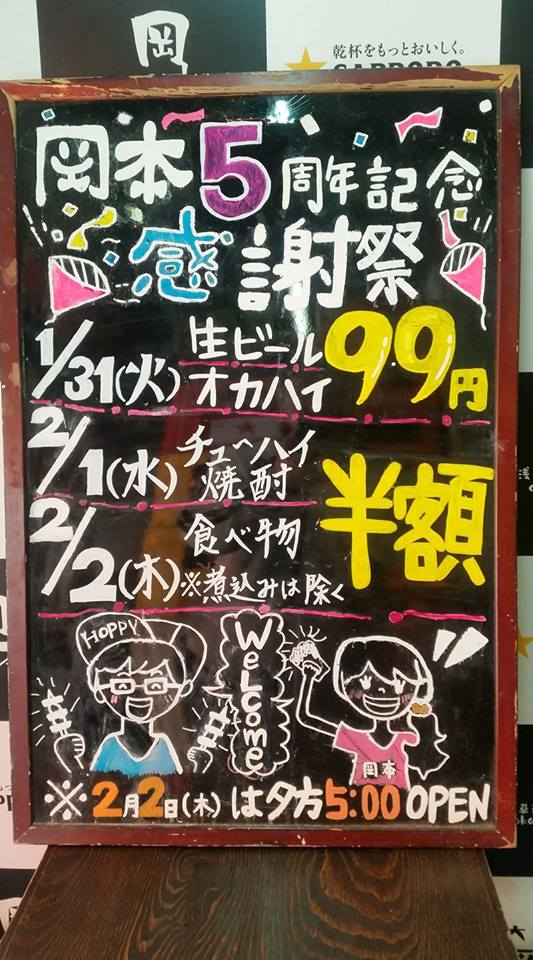 岡
乾杯をもっとおいしく。
SAPPORO
岡本5周年記念
感謝祭
1/31(火) 生ビール
オカハイ
99円
2/1(水) チューハイ
焼酎
半額
2/2(木) 食べ物
※煮込みは除く
HOPPY
WeLcome
岡本
※2月2日(木)は夕方5:00 OPEN